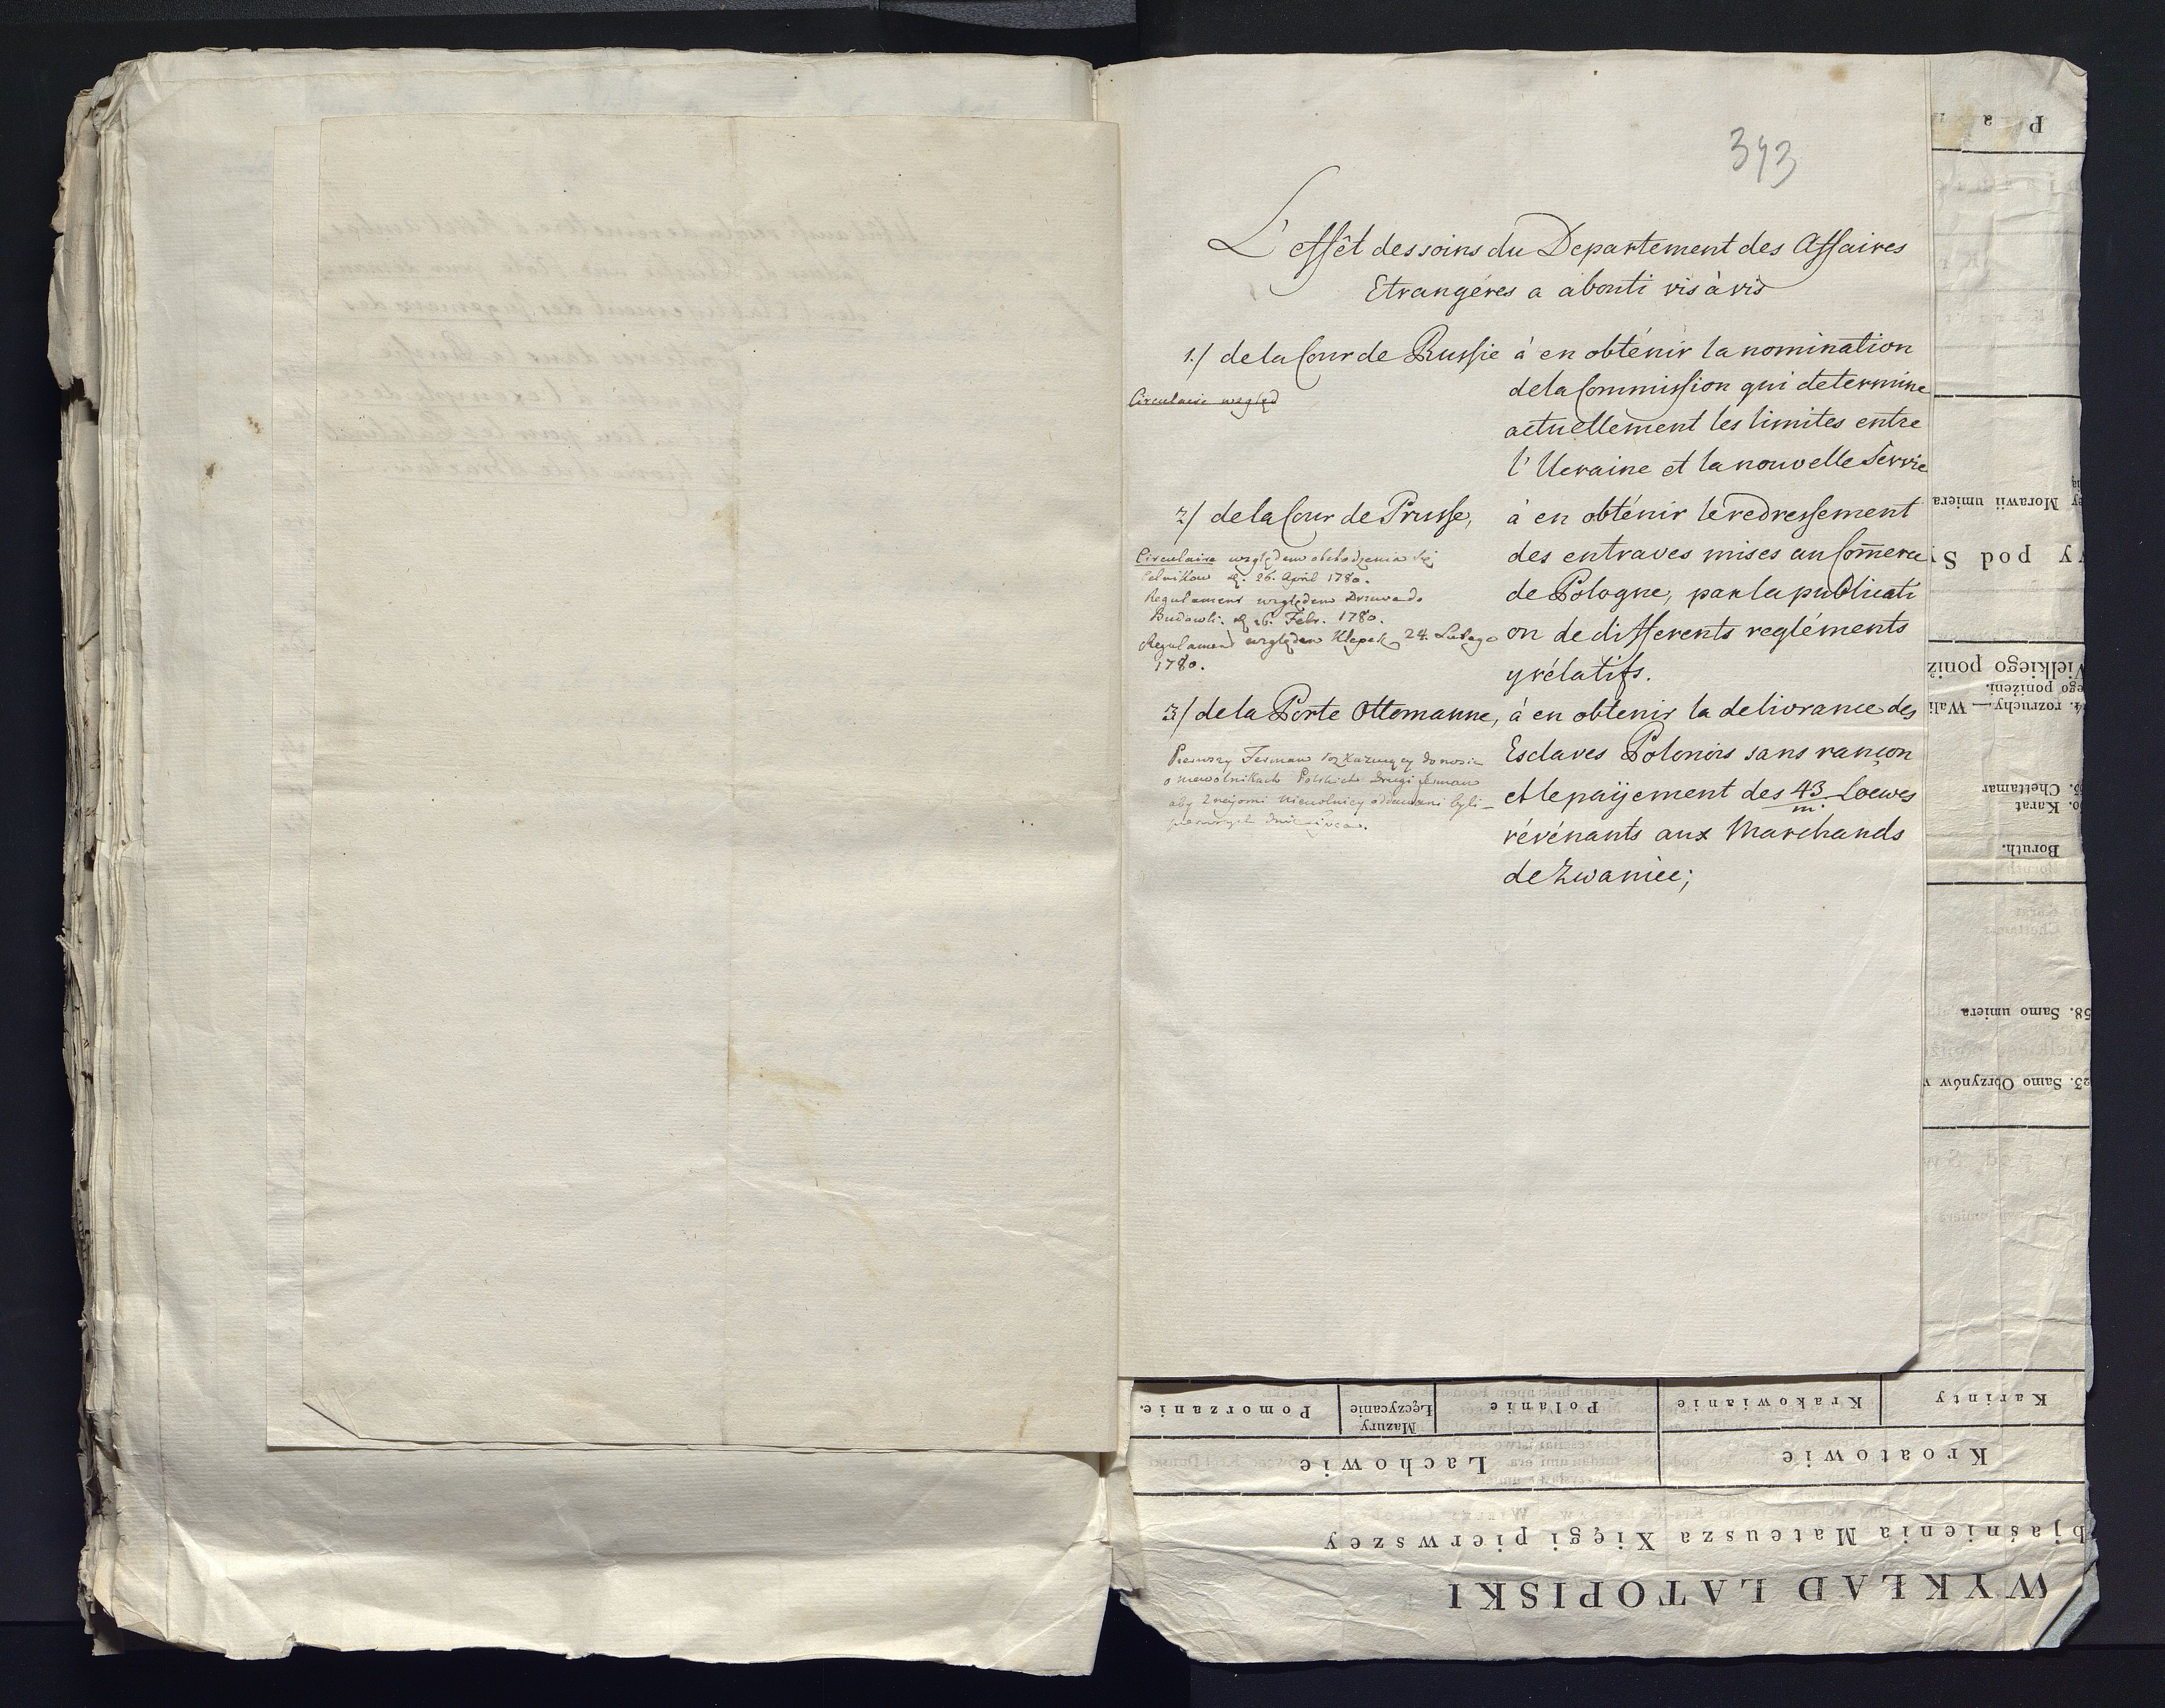 393
L'effêt des soins du Departement des Affaires
Etrangéres a abouti vis à vis
1./ de la Cour de Russie à en obténir la nomination
de la Commission qui determine
Circulaire względ
actuellement les limites entre
l'Ucraine et la nouvelle Servie
2/ de la Cour de Prusse, à en obténir le redressement
Circulaire względem obchodzenia się
Celnikow d. 26. April 1780.
Regulament względem Drzewa do
Budowli. d. 26. Febr. 1780.
Regulament względem Klepek 24. Lutego
1780.
des entraves mises au Com̄erce
de Pologne, par la publicati
on de differents regléments
y rélatifs.
3/ de la Porte Ottomanne, à en obtenir la delivrance des
Pierwszy Ferman rozkazuiący donosić
o niewolnikach Polskich drugi ferman
aby niewolnicy oddawani byli
Esclaves Polonois sans rançon
et le payement des 43/m. Loewes
révénants aux Marchands
de Zwaniec;
P a
Morawii umiera
y pod S
Wielkiego poniż
ego poniżeni.
rozruchy. — Wali
Chettamar
Karat
Boruth.
58. Samo umiera
23. Samo Obrzynów w
Karinty
Krakowianie
Polanie
Mazury
Łęczycanie
Pomorzanie.
Kroatowie
Lachowie
bjaśnienia Mateusza Xięgi pierwszey
WYKŁAD LATOPISKI